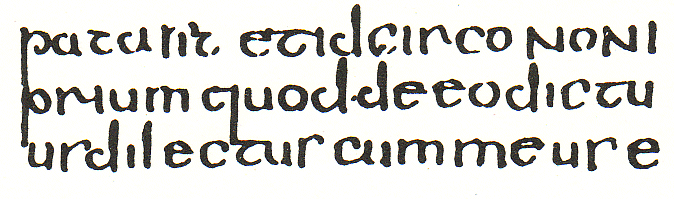 patasit. etidcirco NONI
prium quod.deeodictu
usdilectus cummeus e